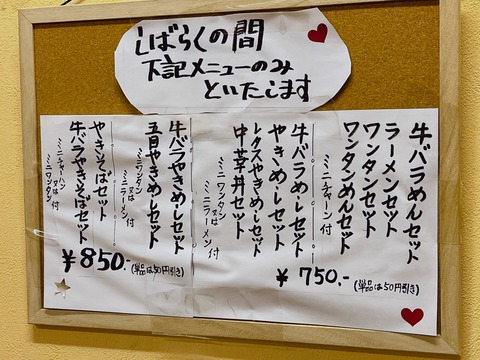 しばらくの間
下記メニューのみ
といたします
牛バラめんセット
ラーメンセット
ワンタンセット
ワンタンめんセット
ミニチャーハン付
牛バラめしセット
やきめしセット
レタスやきめしセット
中華丼セット
ミニワンタン
又は
ミニラーメン付
¥750.-
(単品は50円引き)
牛バラやきめしセット
五目やきめしセット
ミニワンタン
又は
ミニラーメン付
やきそばセット
牛バラやきそばセット
ミニチャーハン
又は
ミニワンタン付
¥850.-
(単品は50円引き)